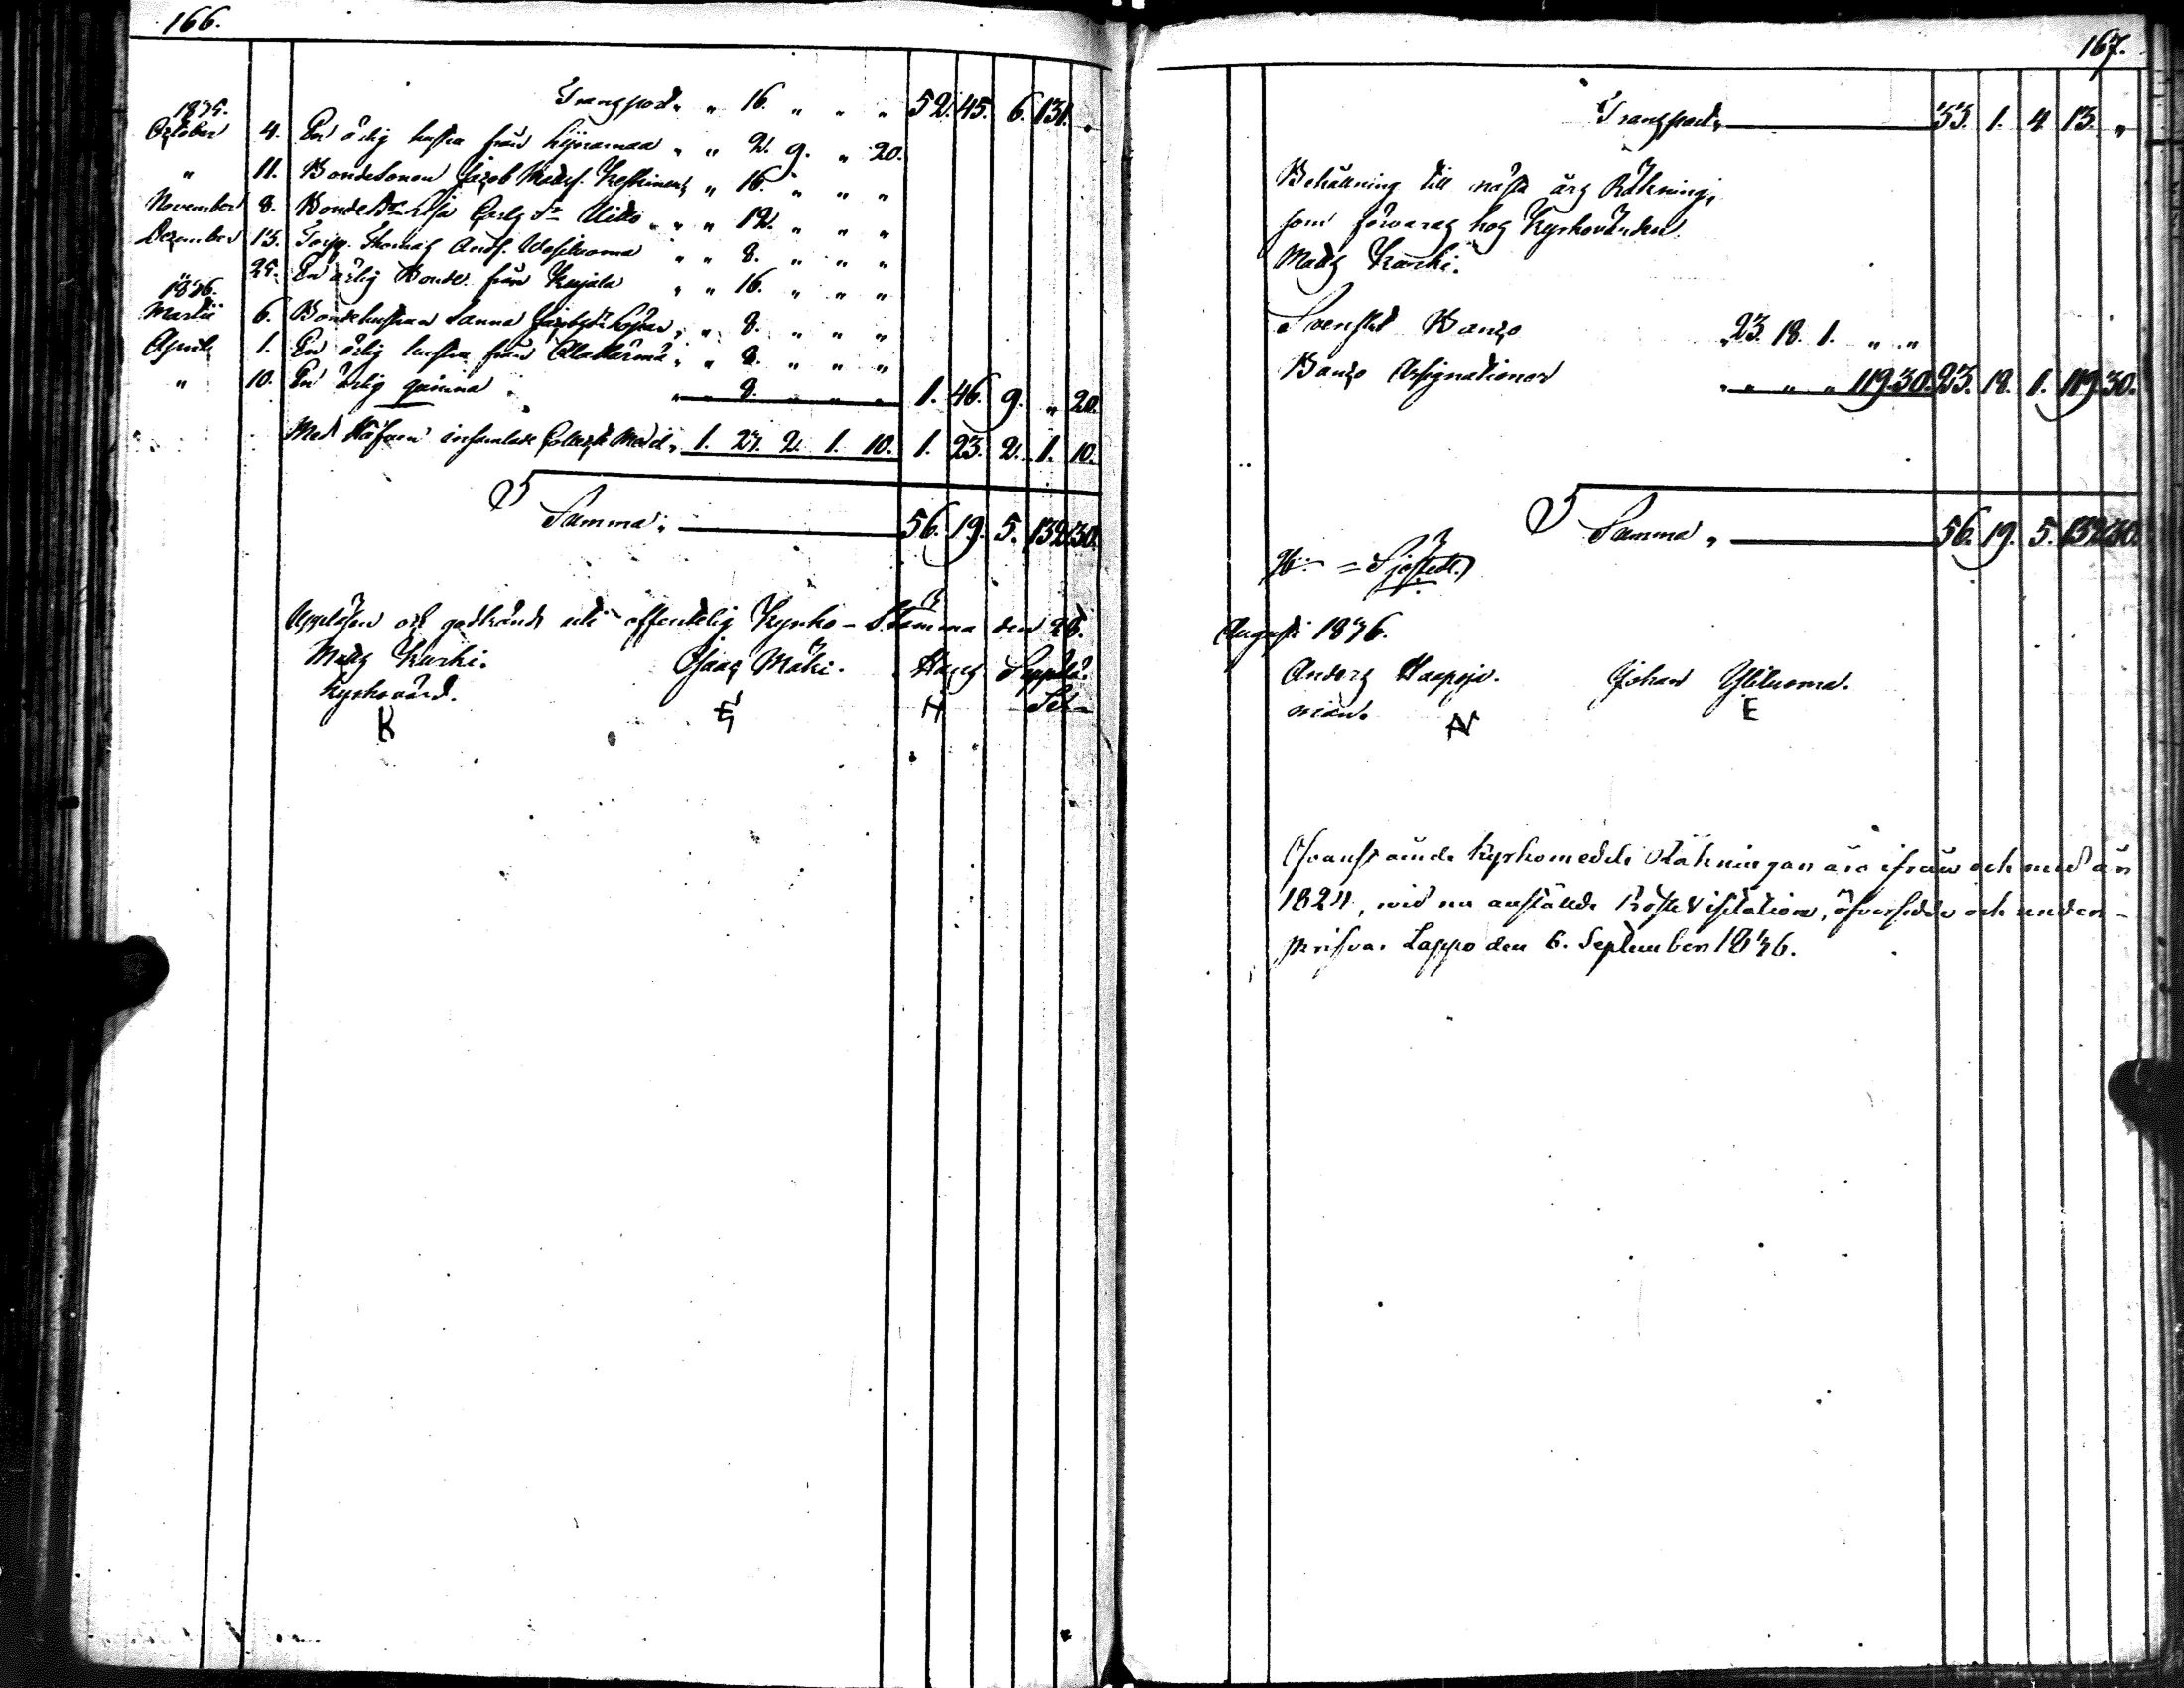 166.
Transport „ „ 16. „ „ „ 52. 45. 6. 131. „
1835.
October 4. En ärlig hustru från „ „ 2. 9. „ 20.
„ 11. Bondesonen Jacob Madss. „ 16. „ „ „
November 8. Bonde Lisa Carls dr „ „ 12. „ „ „
December 13. Torp. Thomas Ands. „ „ 8. „ „ „
25. En ärlig Bonde från „ „ 16. „ „ „
1836.
Martii 6. Bondehustrun Sanna „ „ 8. „ „ „
April 1. En ärlig hustru från Alahärmä „ „ 8. „ „ „
„ 10. En ärlig qvinna „ „ 8. „ „ „ 1. 46. 9. „ 20.
Med Håfven insamlade Collect Medel, 1. 23. 2. 1. 10. 1. 23. 2. 1. 10.
Summa, 56. 19. 5. 132. 30.
Uppläsen och godkänd uti offentelig Kyrko-Stämma den 28.
Mads Karhi. Isaac Mäki. Hans Seppälä.
Kyrkovärd.
K H
167.
Transport, 33. 1. 4. 13. „
Behållning till nästa års Räkning,
som förvaras hos Kyrkovärden
Mads Karhi.
Svenskt Banco „ 23. 18. 1. „ „
Banco Assignationer „ „ „ „ 119. 30. 23. 18. 1. 119. 30.
Summa, 56. 19. 5. 132. 30.
Augusti 1836.
Anders Haapoja. Johan Yliluoma.
män. E
Ofvanstående Kyrkomedels Räkningar äro ifrån och med år
1824, vid nu anställde Proste Visitation, öfversedde och under-
skrifva. Lappo den 6. September 1836.